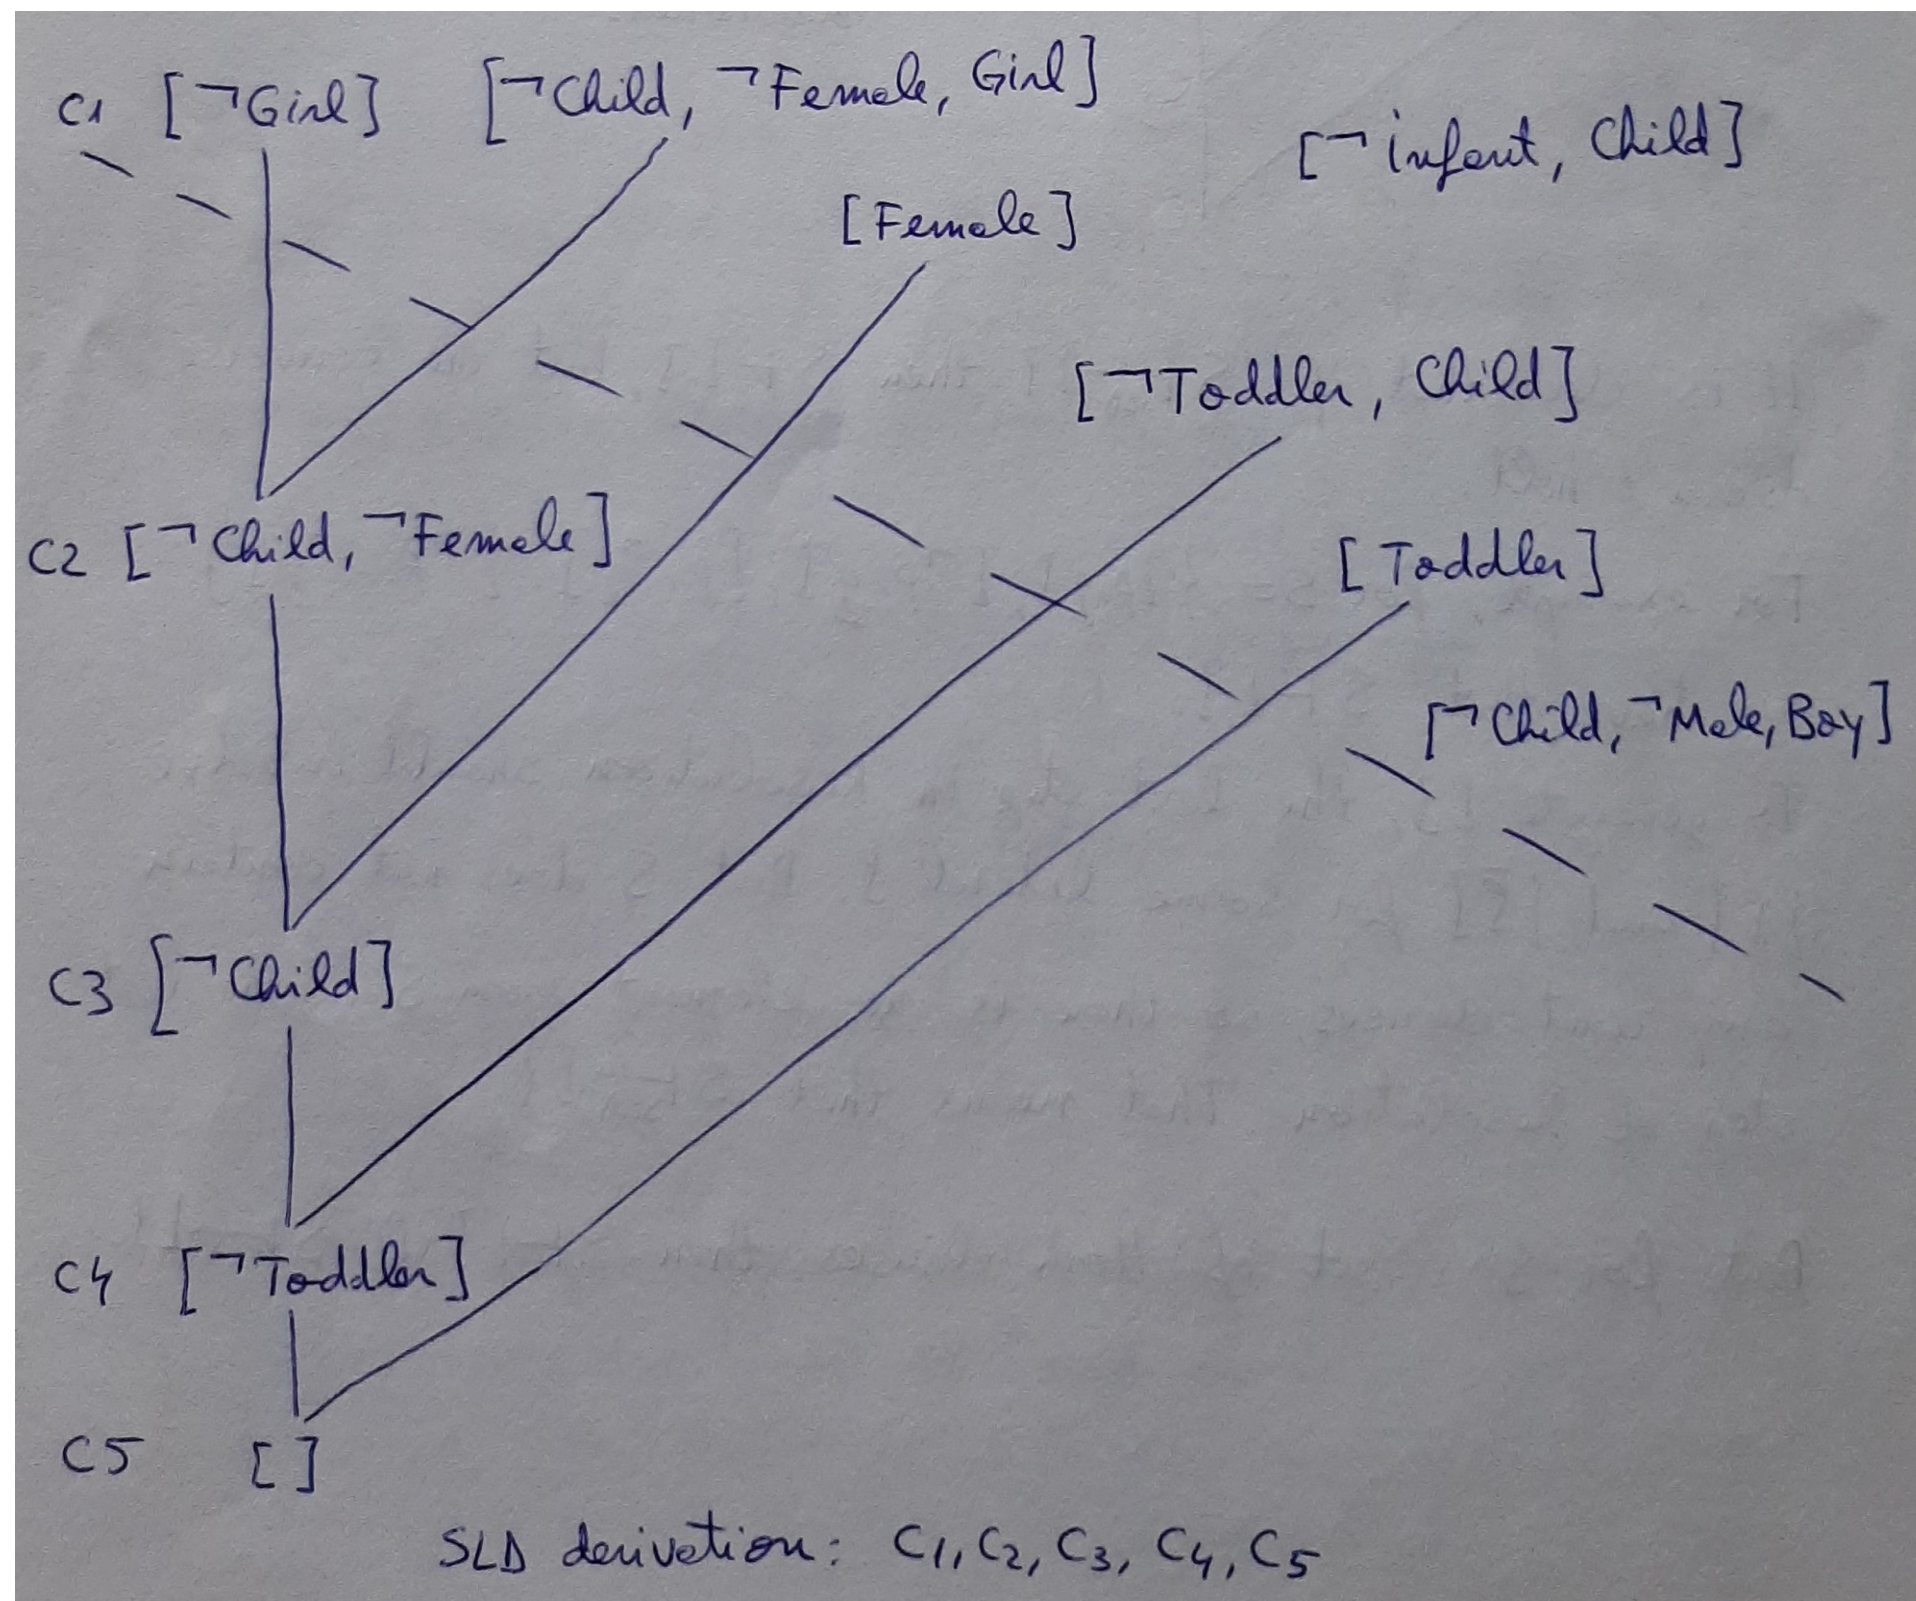 C1 [¬Girl] [¬Child, ¬Female, Girl]
[¬infant, Child]
[Female]
[¬Toddler, Child]
C2 [¬Child, ¬Female]
[Toddler]
[¬Child, ¬Male, Boy]
C3 [¬Child]
C4 [¬Toddler]
C5 []
SLD derivation: C1, C2, C3, C4, C5